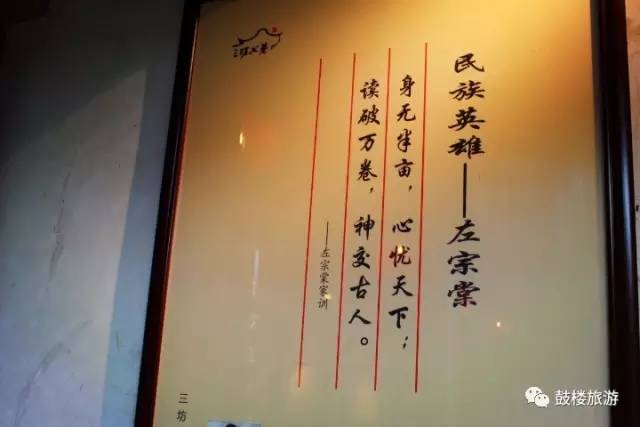 民族英雄——左宗棠
身无半亩，心忧天下；
读破万卷，神交古人。
——左宗棠家训
三坊七巷
三坊
鼓楼旅游